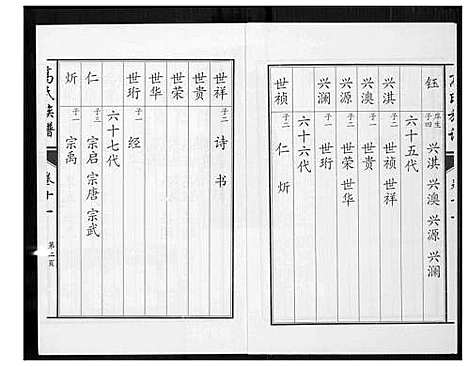 钰 庠生 子四 兴淇 兴澳 兴源 兴澜
六十五代
兴淇 子二 世祯 世祥
兴澳 子一 世贵
兴源 子二 世荣 世华
兴澜 子一 世珩
六十六代
世祯 子二 仁 炘
世祥 子二 诗 书
世贵
世荣
世华
世珩 子一 经
六十七代
仁 子三 宗启 宗唐 宗武
炘 子一 宗禹
氏族谱
卷十一
第二页